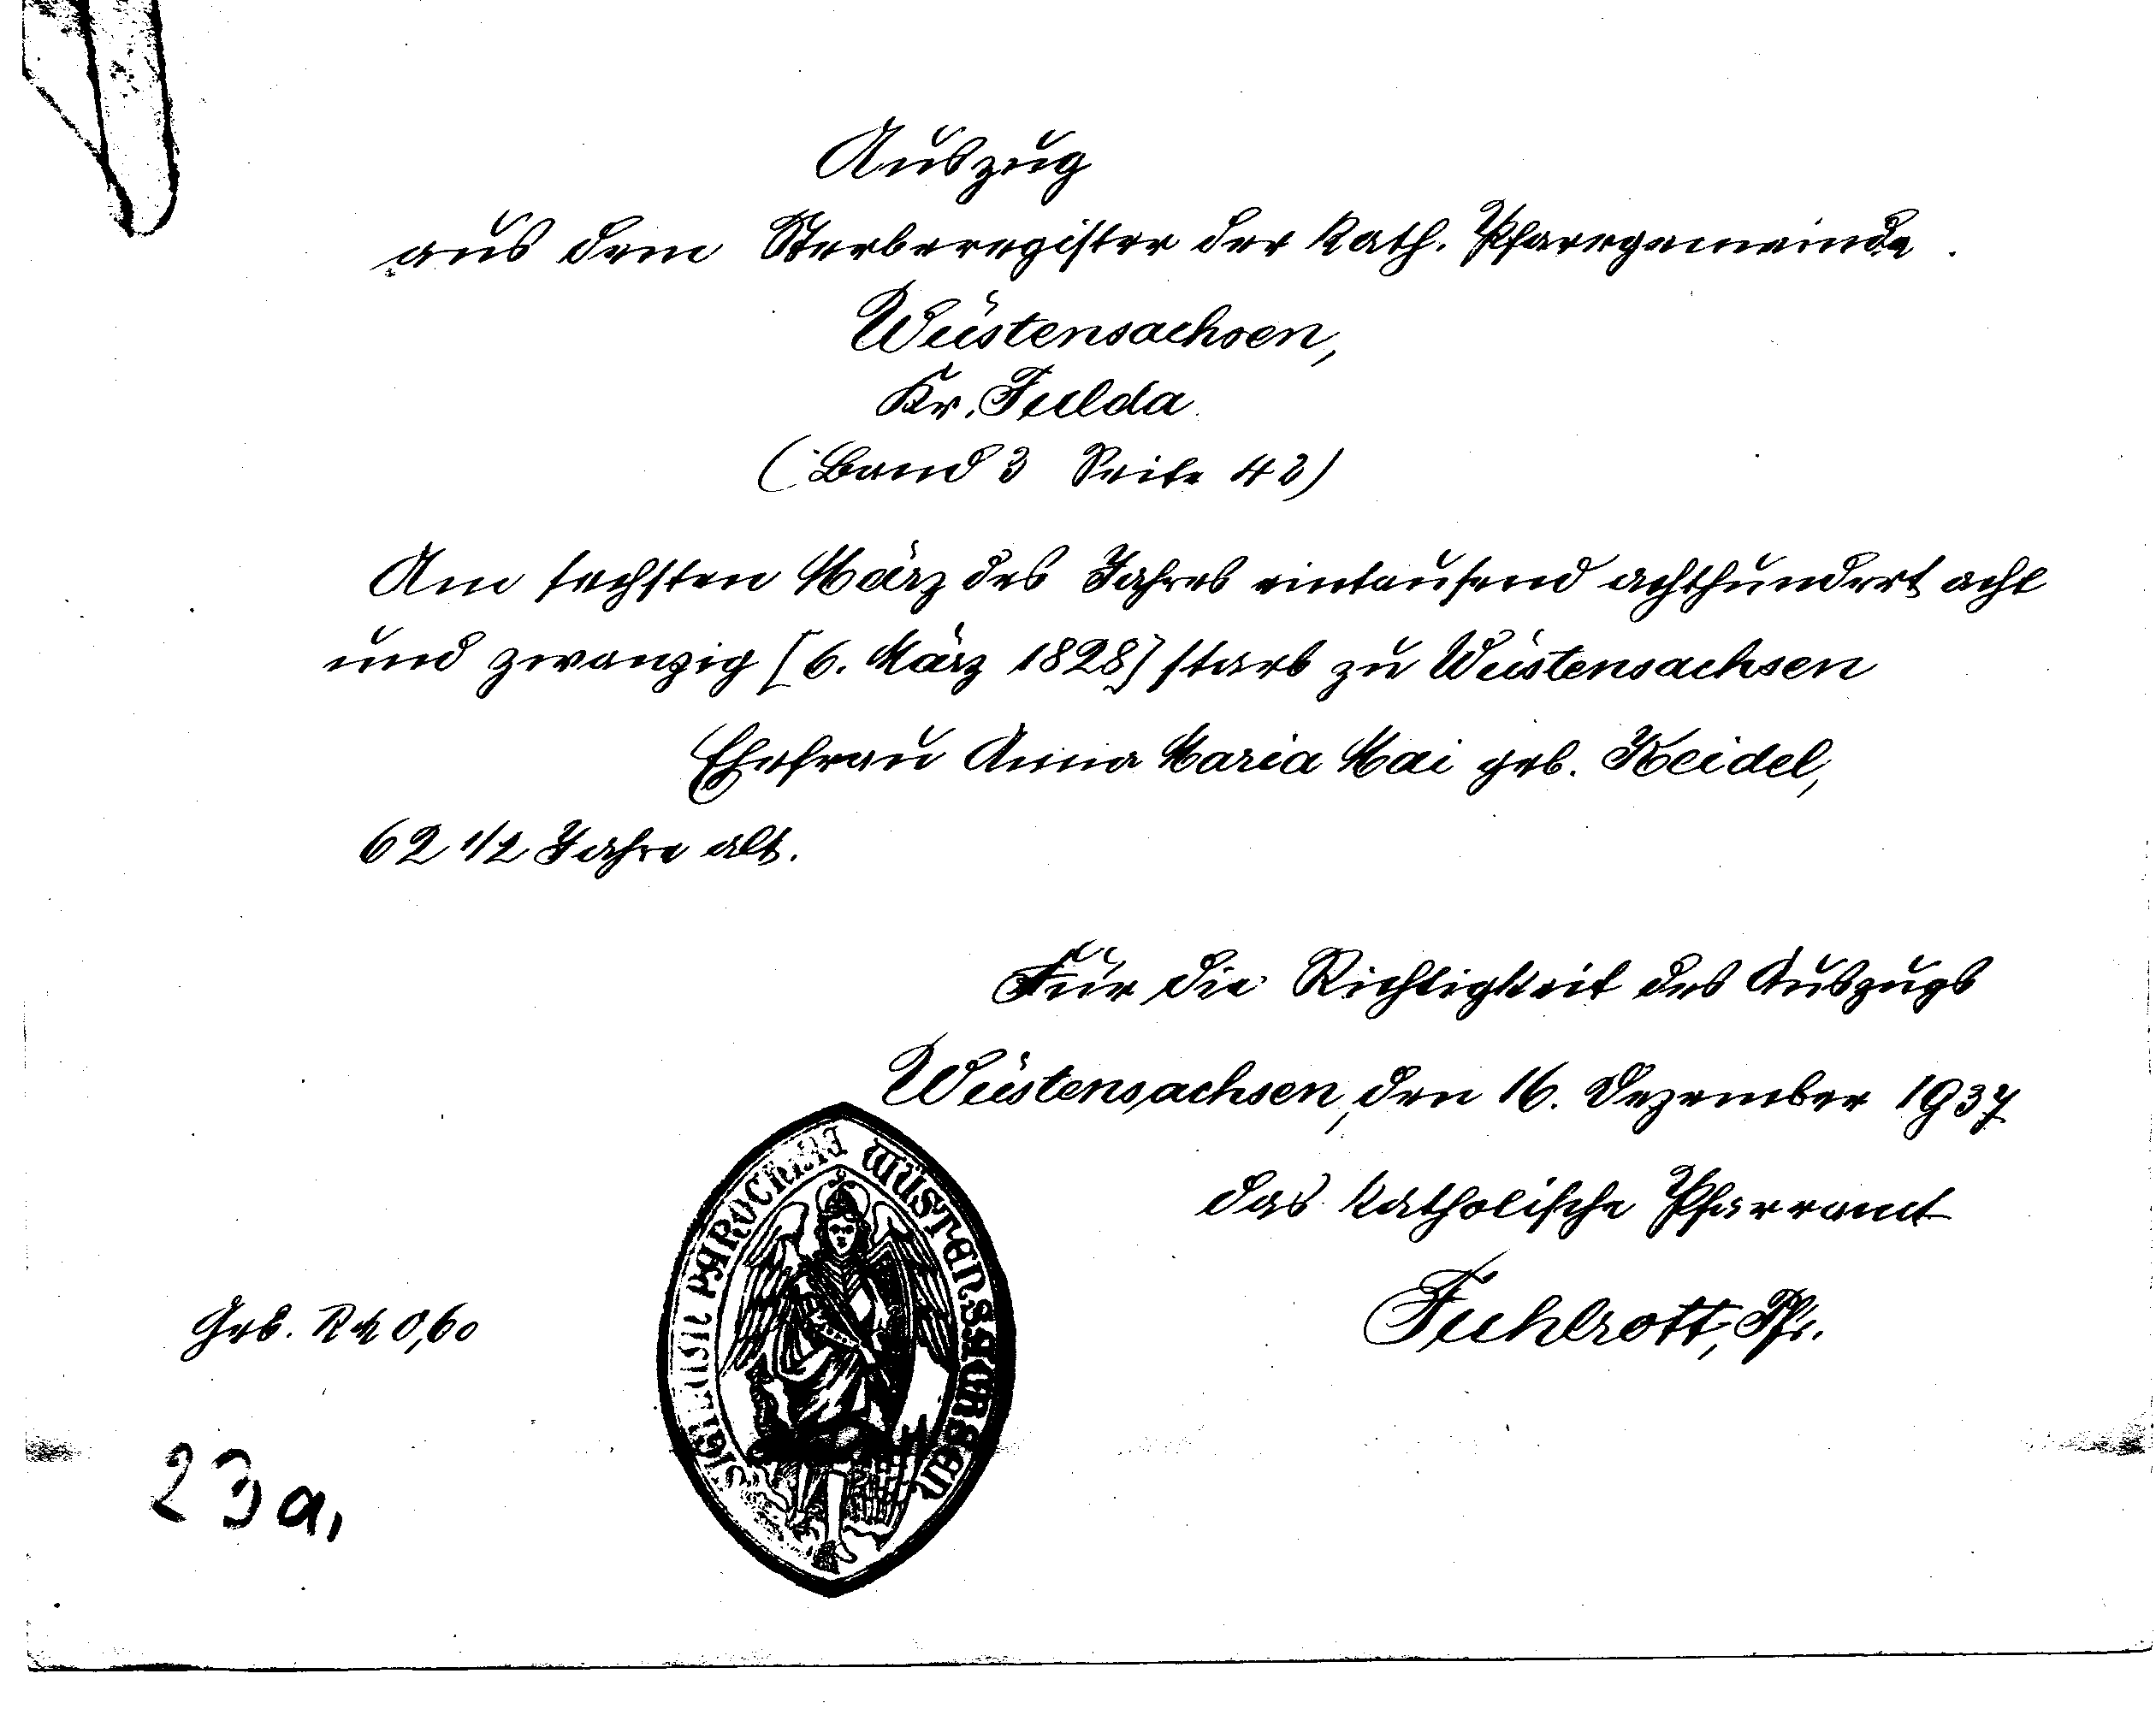 Auszug
aus dem Sterberegister der kath. Pfarrgemeinde
Wüstensachsen,
Kr. Fulda
(Band 3 Seite 43)
Am sechsten März des Jahres eintausend achthundert acht
und zwanzig [6. März 1828] starb zu Wüstensachsen
Ehefrau Anna Maria Mai geb. Keidel,
62 1/2 Jahre alt.
Für die Richtigkeit des Auszugs
Wüstensachsen, den 16. Dezember 1937
das katholische Pfarramt
Fuhlrott, Pfr.
Geb. RM 0,60
SIGILLUM PAROCHIAE WÜSTENSACHSEN
23a,